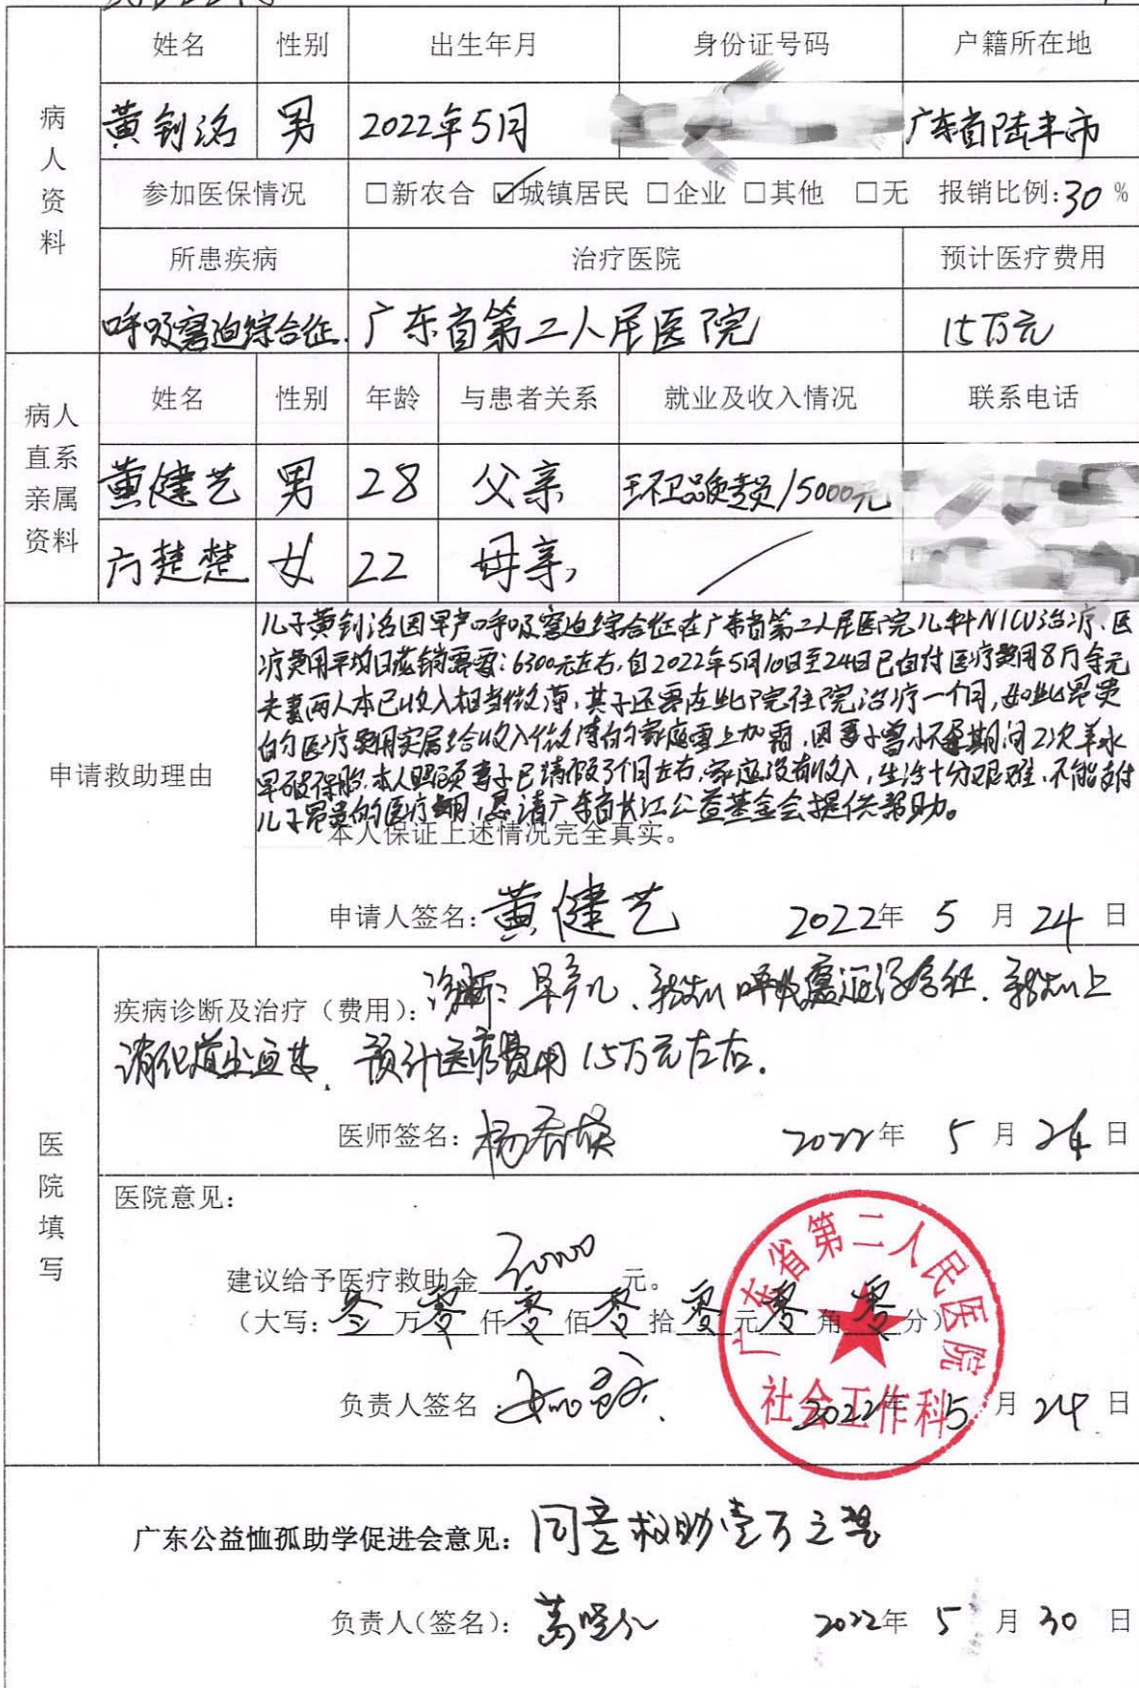 姓名 性别 出生年月 身份证号码 户籍所在地
病人资料
黄钊洺 男 2022年5月 广东省陆丰市
参加医保情况 □新农合 ☑城镇居民 □企业 □其他 □无 报销比例:30%
所患疾病 治疗医院 预计医疗费用
呼吸窘迫综合征. 广东省第二人民医院 15万元
病人直系亲属资料
姓名 性别 年龄 与患者关系 就业及收入情况 联系电话
黄健艺 男 28 父亲 品质专员/5000元
方楚楚 女 22 母亲
申请救助理由
儿子黄钊洺因早产呼吸窘迫综合征在广东省第二人民医院儿科NICU治疗、医
疗费用平均日花销需要:6300元左右,自2022年5月10日至24日已自付医疗费用8万余元
夫妻两人本已收入相当微薄,其子还需在此院住院治疗一个月,如此昂贵
的医疗费用实属给收入微薄的家庭雪上加霜,因妻子曾怀孕期间2次羊水
早破保胎,本人照顾妻子已请假3个月左右,家庭没有收入,生活十分艰难,不能支付
儿子昂贵的医疗费用,恳请广东省长江公益基金会提供帮助。
本人保证上述情况完全真实。
申请人签名:黄健艺 2022年 5 月 24 日
医院填写
疾病诊断及治疗(费用):诊断:早产儿、新生儿呼吸窘迫综合征.新生儿上
消化道出血, 预计医疗费用15万元左右.
医师签名: 2022年 5 月 24 日
医院意见:
建议给予医疗救助金 30000 元。
(大写:叁万零仟零佰零拾零元零角零分)
负责人签名 2022年 5 月 24 日
广东省第二人民医院
社会工作科
广东公益恤孤助学促进会意见:同意救助壹万元整
负责人(签名): 2022年 5 月 30 日